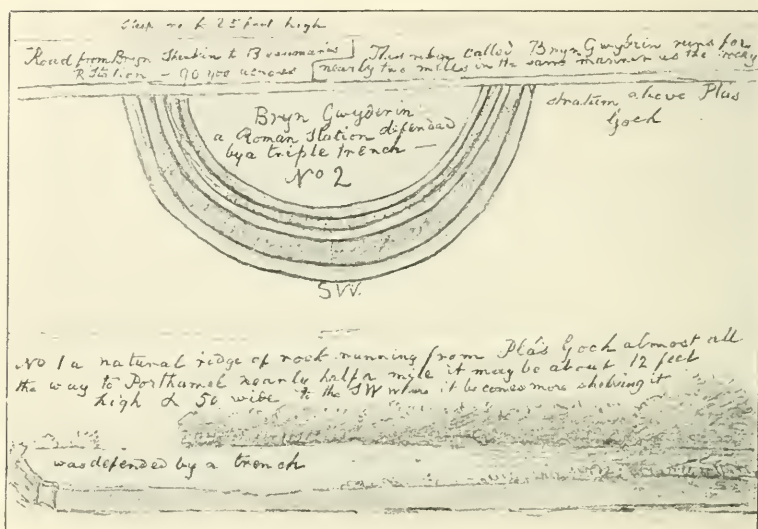 Steep rock 25 feet high
Road from Bryn to Beaumaris
R Station - 90 yds across
This when called Bryn Gwydrin runs for
nearly two miles in the same manner as the rocky
stratum above Plas
Goch
Bryn Gwydirin
a Roman Station difended
by a triple trench —
No 2
SW.
No 1 a natural ridge of rock running from Plás Goch almost all
the way to Porthamel nearly half a mile it may be about 12 feet
high & 50 wide to the SW where it becomes more shelving it
was defended by a trench